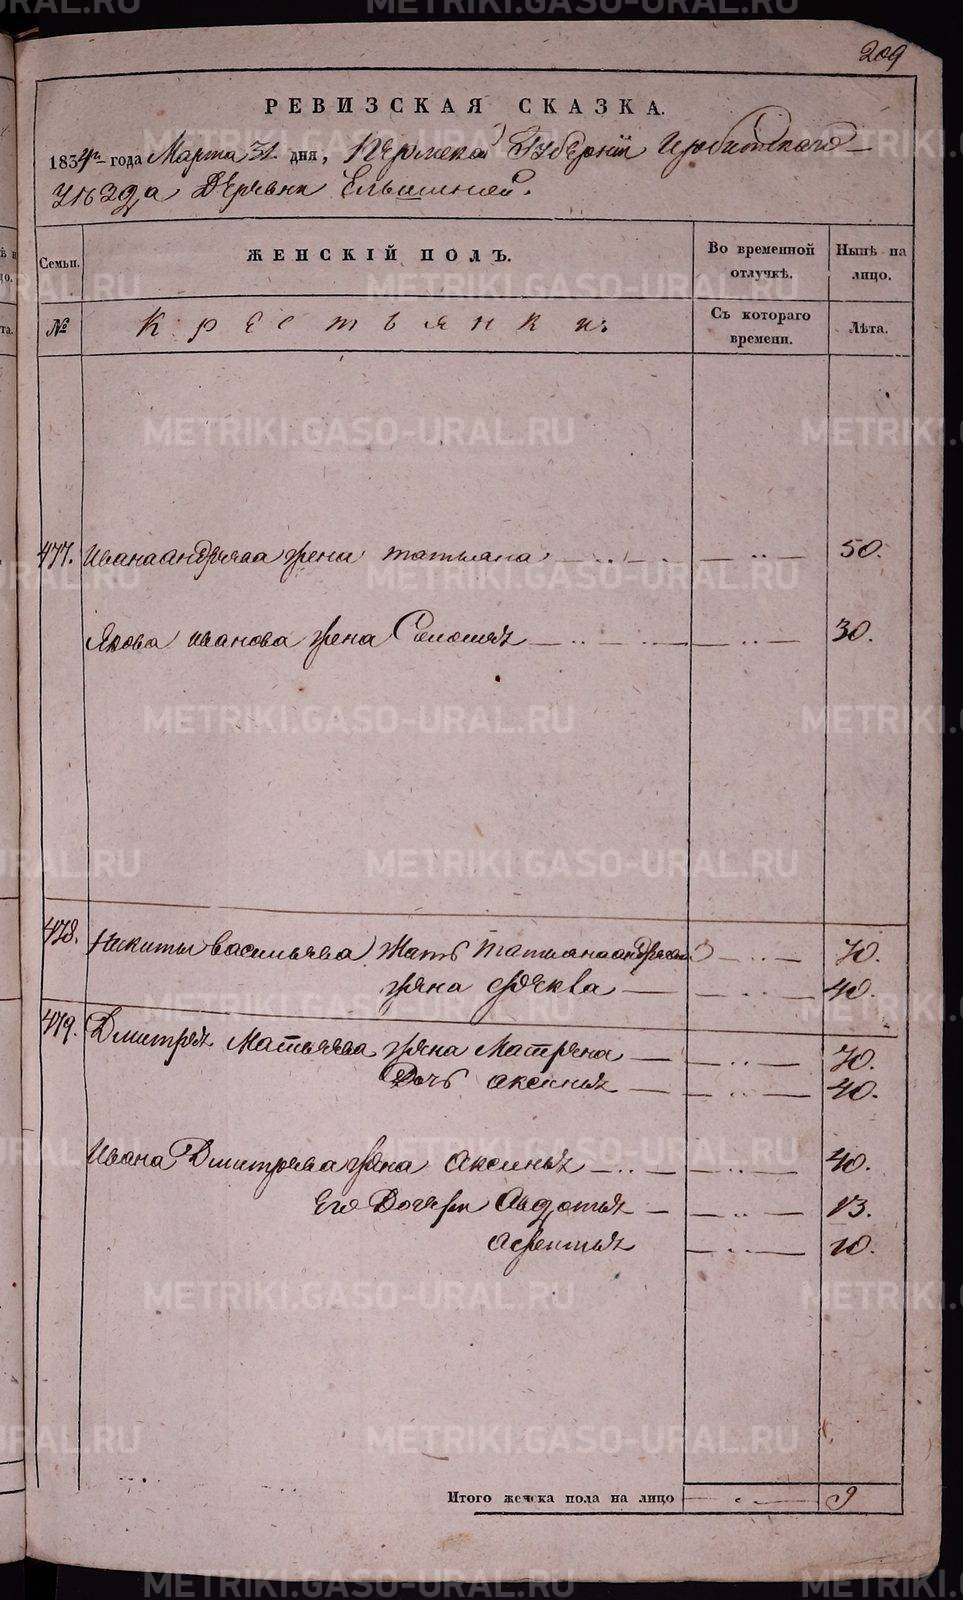 209
РЕВИЗСКАЯ СКАЗКА.
1834го года Марта 31 дня, Пермской Губерніи Ирбитскаго
Уѣзда Деревни Ельшиной.
Семьи. ЖЕНСКІЙ ПОЛЪ. Во временной отлучкѣ. Нынѣ на лицо.
№ Крестьянки. Съ котораго времени. Лѣта.
477. Ивана андреева жена татьяна 50.
Якова иванова жена Соломея 30.
478. Никиты васильева Мать татьяна андреева 70.
жена фекла 40.
479. Дмитрея Матвеева жена Матрена 70.
Дочь аксинья 40.
Ивана Дмитрева жена аксинья 40.
Его Дочери Авдотья 13.
афентья 10.
Итого женска пола на лицо 9
METRIKI.GASO-URAL.RU